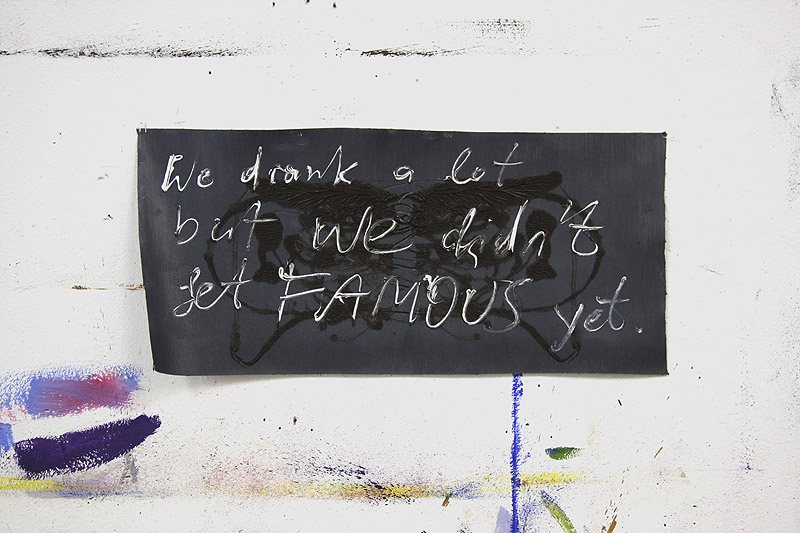 We drank a lot
but we didn't
get FAMOUS yet.